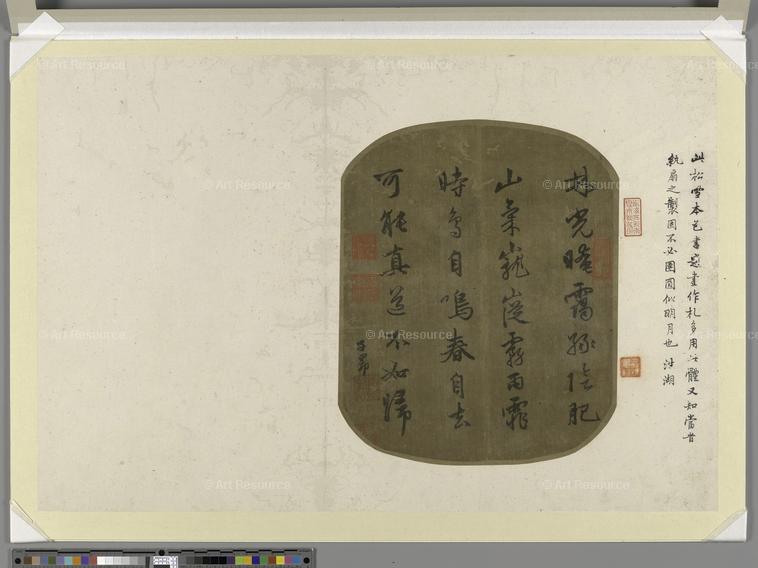 此松雪本色書畫作札多用此體又知當昔
紈扇之製固不必團圓似明月也
林光晻靄綠陰肥
山氣巃嵸霧雨霏
時鳥自鳴春自去
可能真道不如歸
子昂
© Art Resource
© Art Resource
© Art Resource
© Art Resource
© Art Resource
© Art Resource
© Art Resource
© Art Resource
© Art Resource